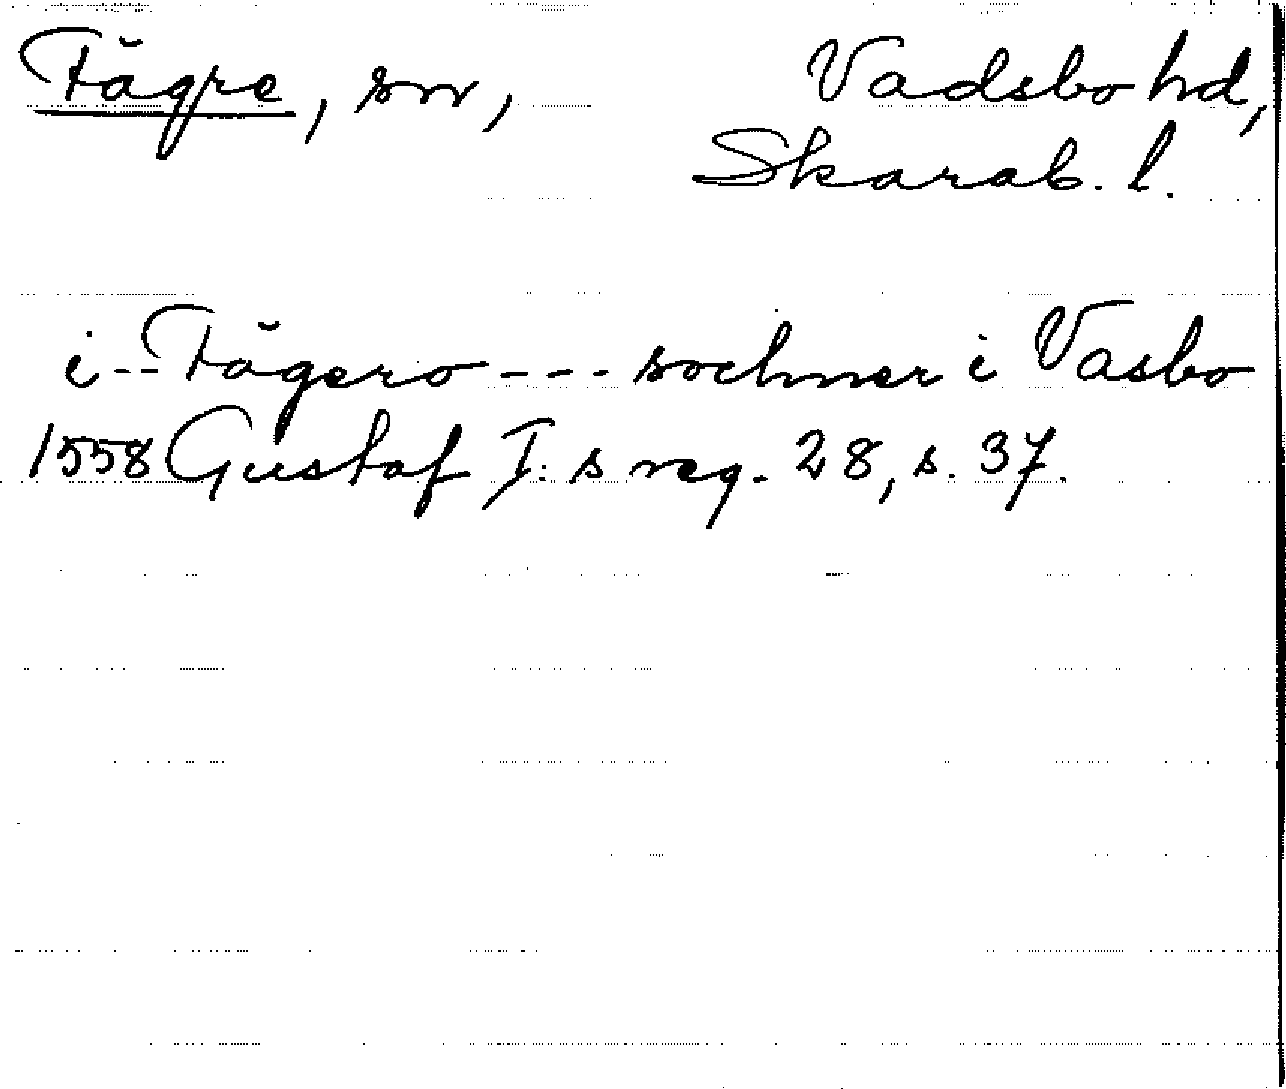 Fägre, sn, Vadsbo hd,
Skarab. l.
i -- Fägero --- sochner i Vasbo
1558 Gustaf I:s reg. 28, s. 37.